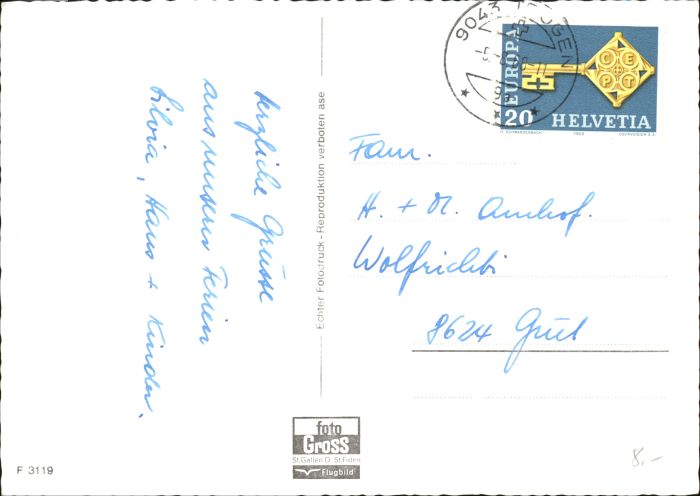 herzliche Grüsse
aus unseren Ferien
Silvia, Hans + Kinder.
Echter Fotodruck - Reproduktion verboten ase
9043 TROGEN
EUROPA
CEPT
20 HELVETIA
H. SCHWARZENBACH 1968 COURVOISIER S.A.
Fam.
H. + M. Amhof.
Wolfrichti
8624 Grüt
foto
Gross
St.Gallen O. St.Fiden
Flugbild
F 3119
8.-